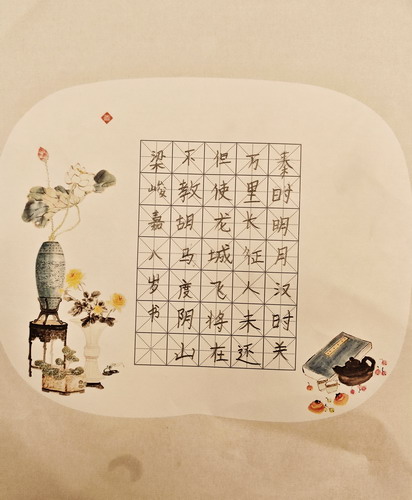 秦时明月汉时关
万里长征人未还
但使龙城飞将在
不教胡马度阴山
梁峻嘉八岁书